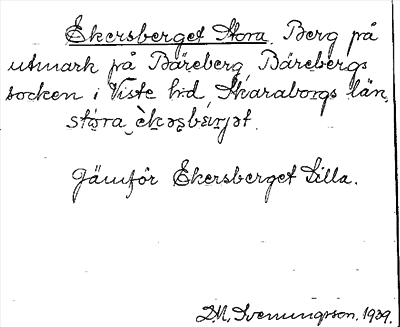 Ekersberget Stora. Berg på
utmark på Bäreberg, Bärebergs
socken i Viste hd, Skaraborgs län.
stora ekəsbærjət.
Jämför Ekersberget Lilla.
D.N. Svenningson. 1939.